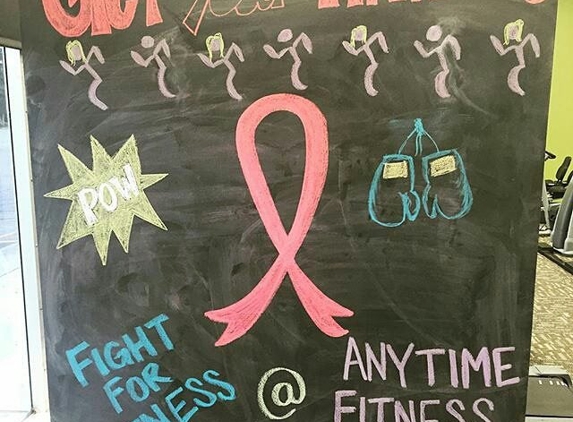 POW
FIGHT
FOR
TNESS
@
ANYTIME
FITNESS